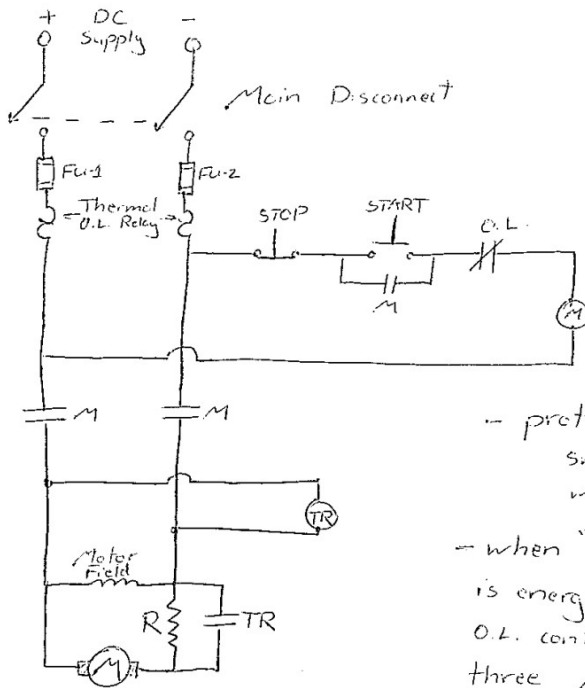 + DC -
Supply
Main Disconnect
Fu-1
Fu-2
Thermal
O.L. Relay
STOP
START
O.L.
M
M
M
M
TR
Motor
Field
R
TR
M
- when
is energ
O.L. con
three